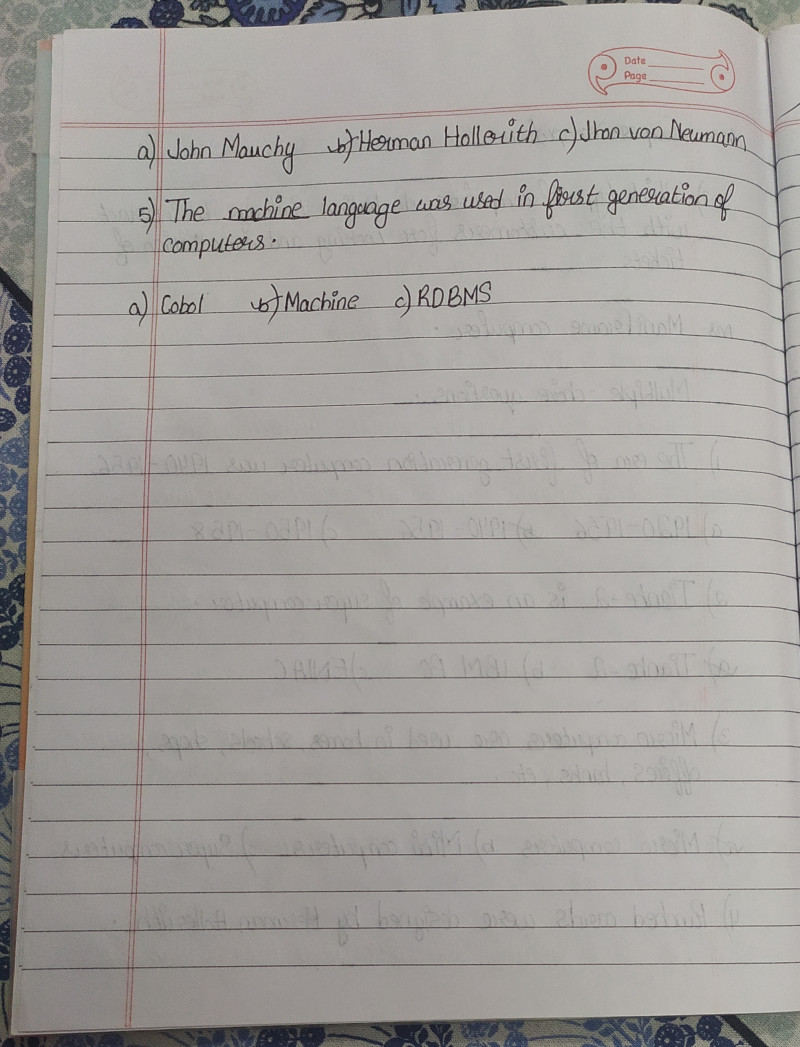 Date
Page
a) John Mauchy b) Herman Hollerith c) Jhon von Neumann
5) The machine language was used in first generation of
computers.
a) Cobol b) Machine c) RDBMS